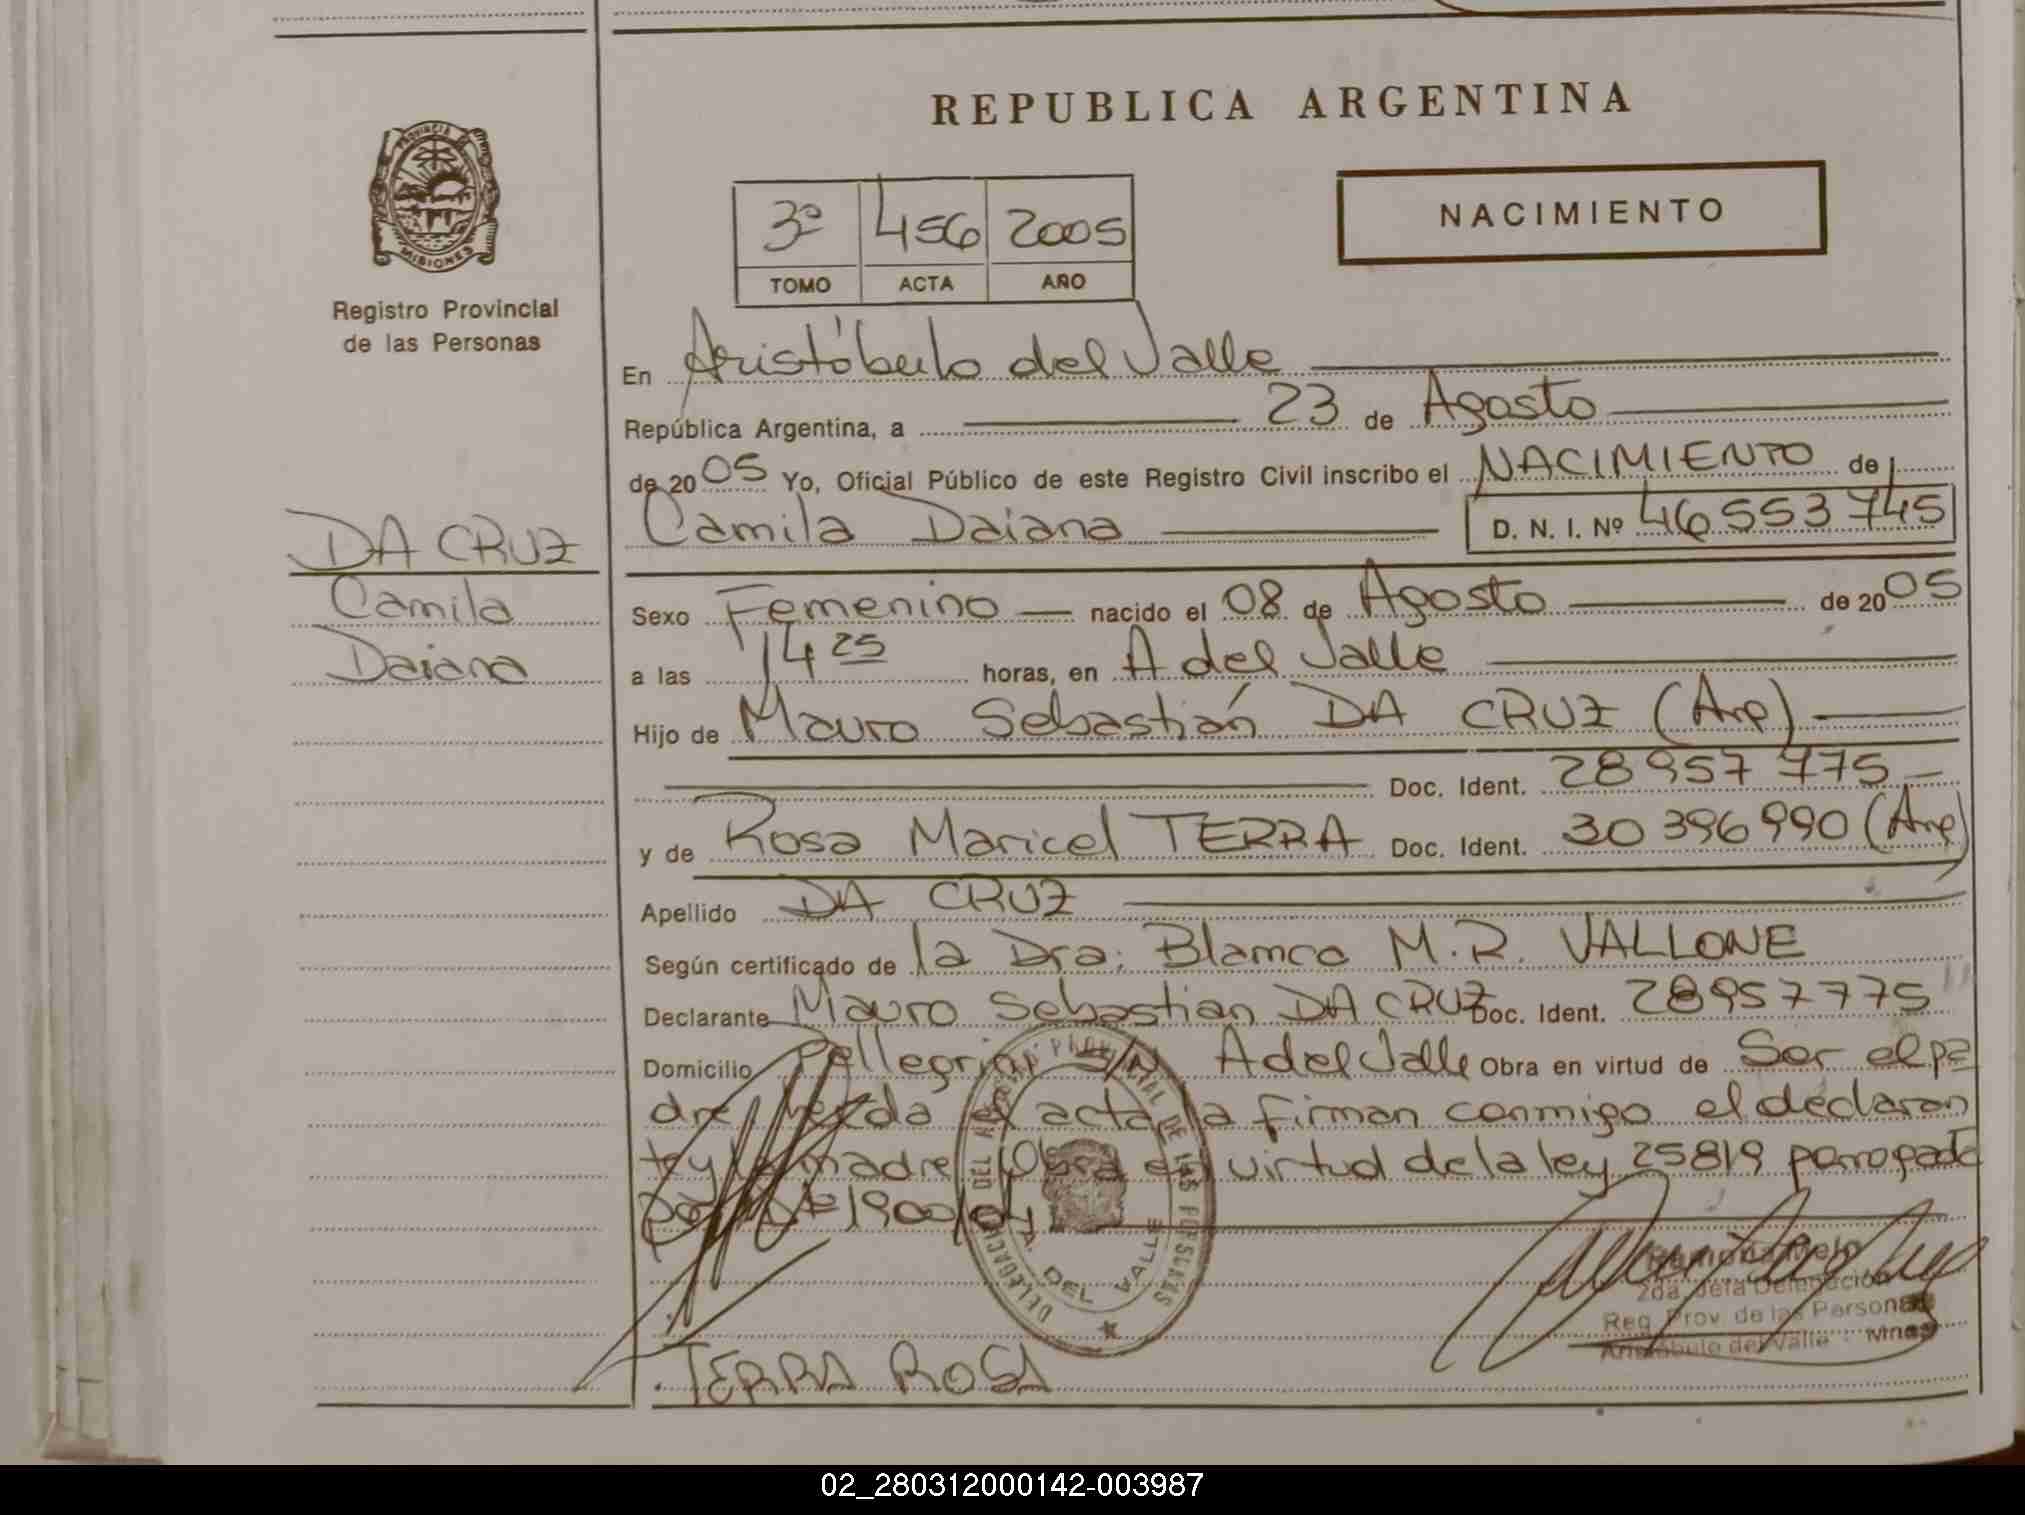 REPUBLICA ARGENTINA
PROVINCIA
MISIONES
Registro Provincial
de las Personas
NACIMIENTO
3º 456 2005
TOMO ACTA AÑO
En Aristóbulo del Valle
República Argentina, a 23 de Agosto
de 2005 Yo, Oficial Público de este Registro Civil inscribo el NACIMIENTO de
Camila Daiana D. N. I. Nº 46553745
DA CRUZ
Camila
Daiana
Sexo Femenino nacido el 08 de Agosto de 2005
a las 14 25 horas, en A del Valle
Hijo de Mauro Sebastián DA CRUZ (Arg)
Doc. Ident. 28957775
y de Rosa Maricel TERRA Doc. Ident. 30396990 (Arg)
Apellido DA CRUZ
Según certificado de la Dra: Blanca M.R. VALLONE
Declarante Mauro Sebastian DA CRUZ Doc. Ident. 28957775
Domicilio Pellegrini S/N A del Valle Obra en virtud de Ser el pa
dre leida el acta la firman conmigo el declaran
te y la madre Obra en virtud de la ley 25819 prrogada
por 1900/04
DELEGACION DEL REGISTRO PROVINCIAL DE LAS PERSONAS
A. DEL VALLE
Ramona Melo
2da. Jefa Delegación
Reg. Prov. de las Personas
Aristóbulo del Valle - Mnes
TERRA ROSA
02_280312000142-003987